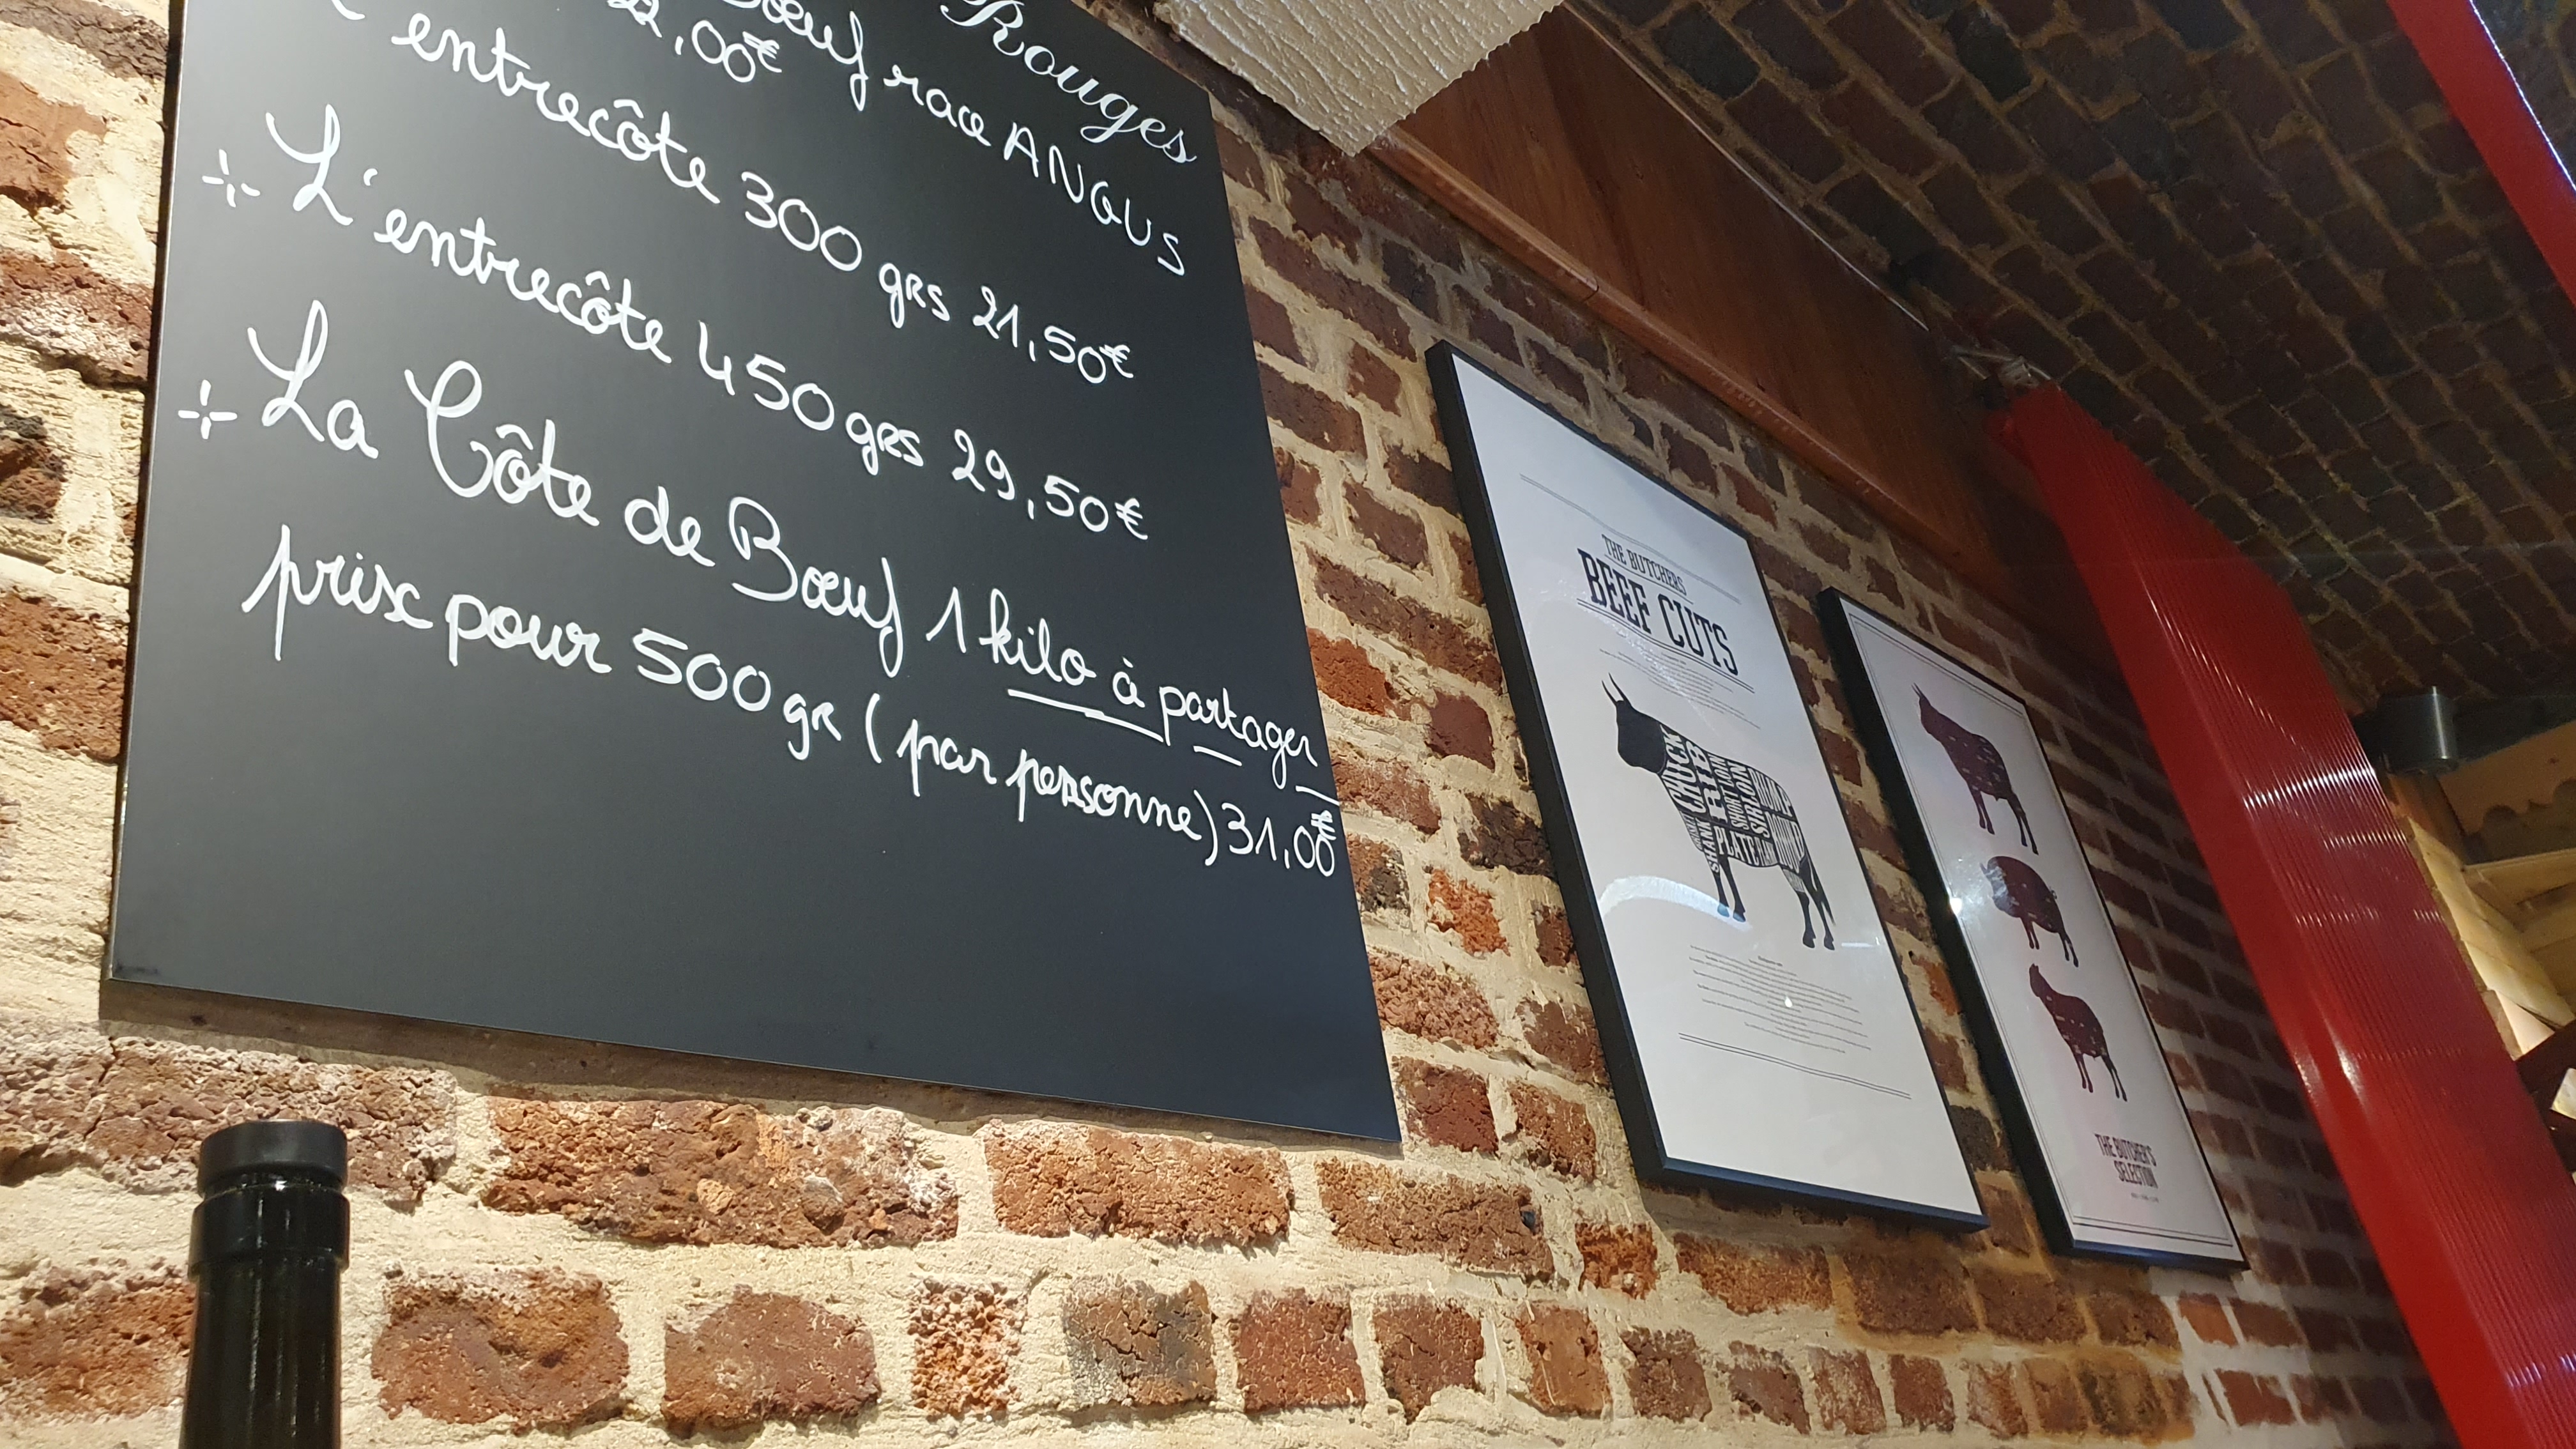 Rouges
Bœuf race ANGUS
22,00€
L'entrecôte 300 grs 21,50€
L'entrecôte 450 grs 29,50€
La Côte de Bœuf 1 kilo à partager
prix pour 500 gr (par personne) 31,00€
THE BUTCHERS
BEEF CUTS
CHUCK
RIB
SHORT LOIN
SIRLOIN
RUMP
ROUND
SHANK
PLATE
THE BUTCHER'S
SELECTION